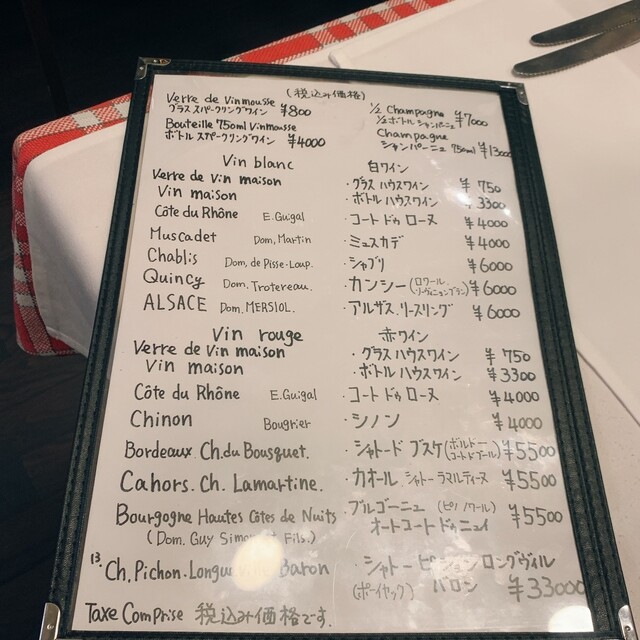 (税込み価格)
Verre de Vinmousse
グラス スパークリングワイン ¥800
Bouteille 750ml Vinmousse
ボトル スパークリングワイン ¥4000
½ Champagne
½ボトル シャンパーニュ ¥7000
Champagne
シャンパーニュ 750ml ¥13000
Vin blanc 白ワイン
Verre de Vin maison ・グラス ハウスワイン ¥750
Vin maison ・ボトル ハウスワイン ¥3300
Côte du Rhône E.Guigal ・コート ドゥ ローヌ ¥4000
Muscadet Dom,Martin ・ミュスカデ ¥4000
Chablis Dom, de Pisse-Loup. ・シャブリ ¥6000
Quincy Dom, Trotereau. ・カンシー(ロワール、ソーヴィニョンブラン) ¥6000
ALSACE Dom. MERSIOL. ・アルザス.リースリング ¥6000
Vin rouge 赤ワイン
Verre de Vin maison ・グラス ハウスワイン ¥750
Vin maison ・ボトル ハウスワイン ¥3300
Côte du Rhône E.Guigal ・コート ドゥ ローヌ ¥4000
Chinon Bougrier ・シノン ¥4000
Bordeaux Ch.du Bousquet. ・シャトード ブスケ(ボルドー コートドブール) ¥5500
Cahors. Ch. Lamartine. ・カオール シャトー ラマルティーヌ ¥5500
Bourgogne Hautes Côtes de Nuits ・ブルゴーニュ (ピノ ノワール) ¥5500
(Dom. Guy Simon et Fils.) オートコート ドゥニュイ
'13 Ch, Pichon. Longueville Baron ・シャトー ピション ロングヴィル
(ポーイヤック) バロン ¥33000
Taxe Comprise 税込み価格です.